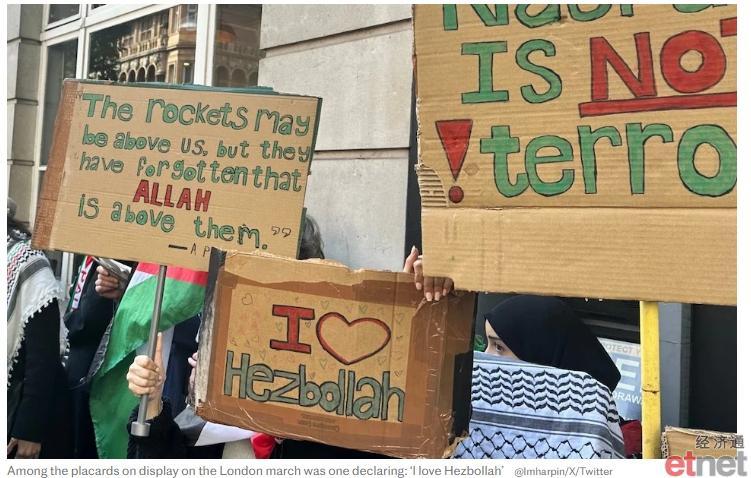 "The rockets may
be above us, but they
have forgotten that
ALLAH
is above them."
I
Hezbollah
IS NOT
Among the placards on display on the London march was one declaring: 'I love Hezbollah' @lmharpin/X/Twitter
经济通
etnet